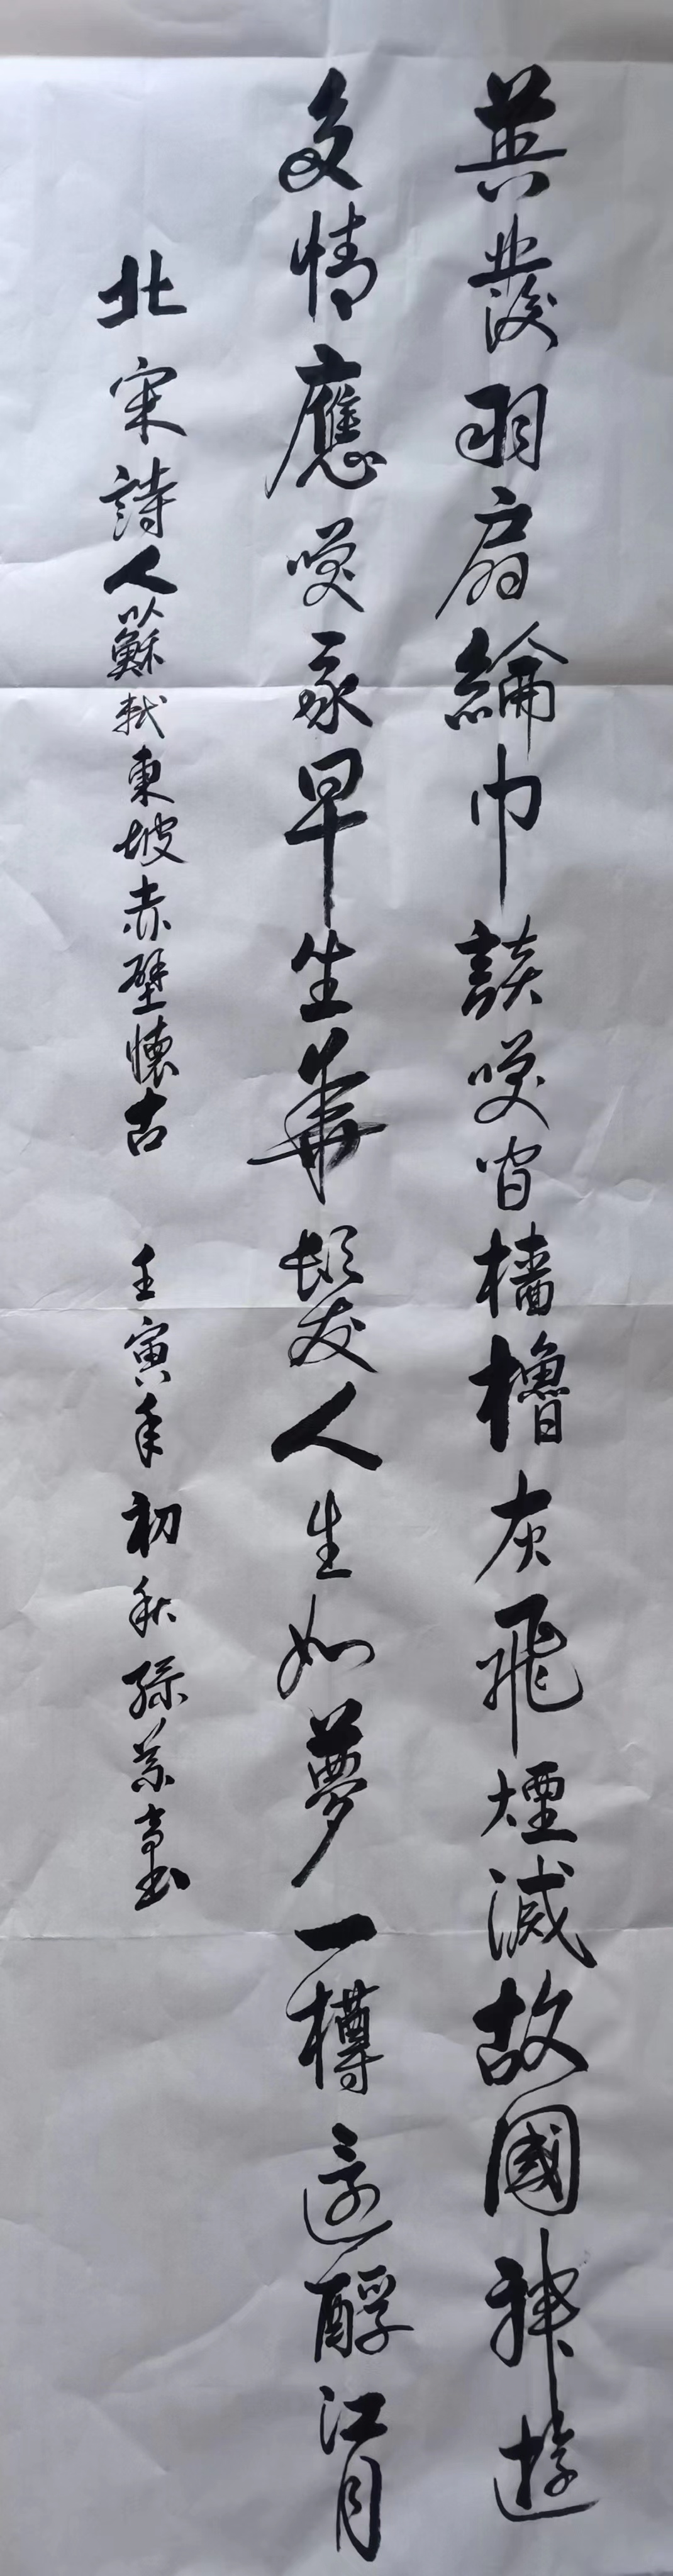 英發羽扇綸巾談笑间檣櫓灰飛煙滅故國神遊
多情應笑我早生華髮人生如夢一樽還酹江月
北宋詩人蘇軾東坡赤壁懷古 壬寅年初秋孫景書